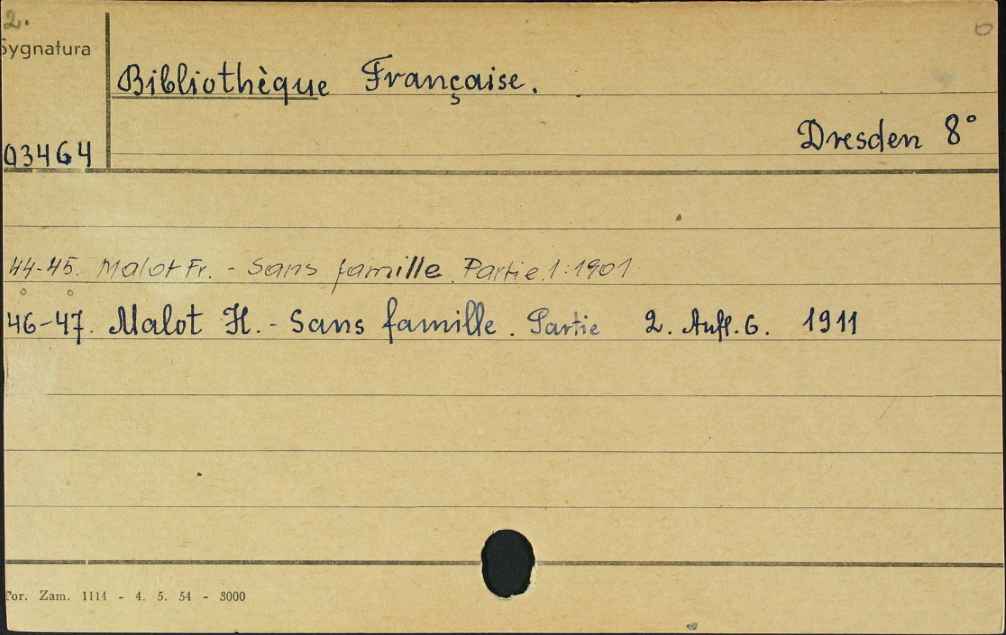 2.
Sygnatura
Bibliothèque Française.
03464
Dresden 8°
44-45. Malot Fr. - Sans famille. Partie 1: 1901
46-47. Malot H. - Sans famille. Partie 2. Aufl. 6. 1911
Por. Zam. 1114 - 4. 5. 54 - 3000